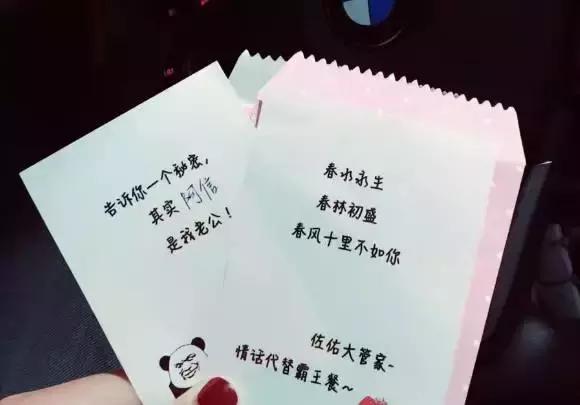 告诉你一个秘密，
其实 阿信
是我老公！
春水永生
春林初盛
春风十里不如你
佐佑大管家-
情话代替霸王餐～